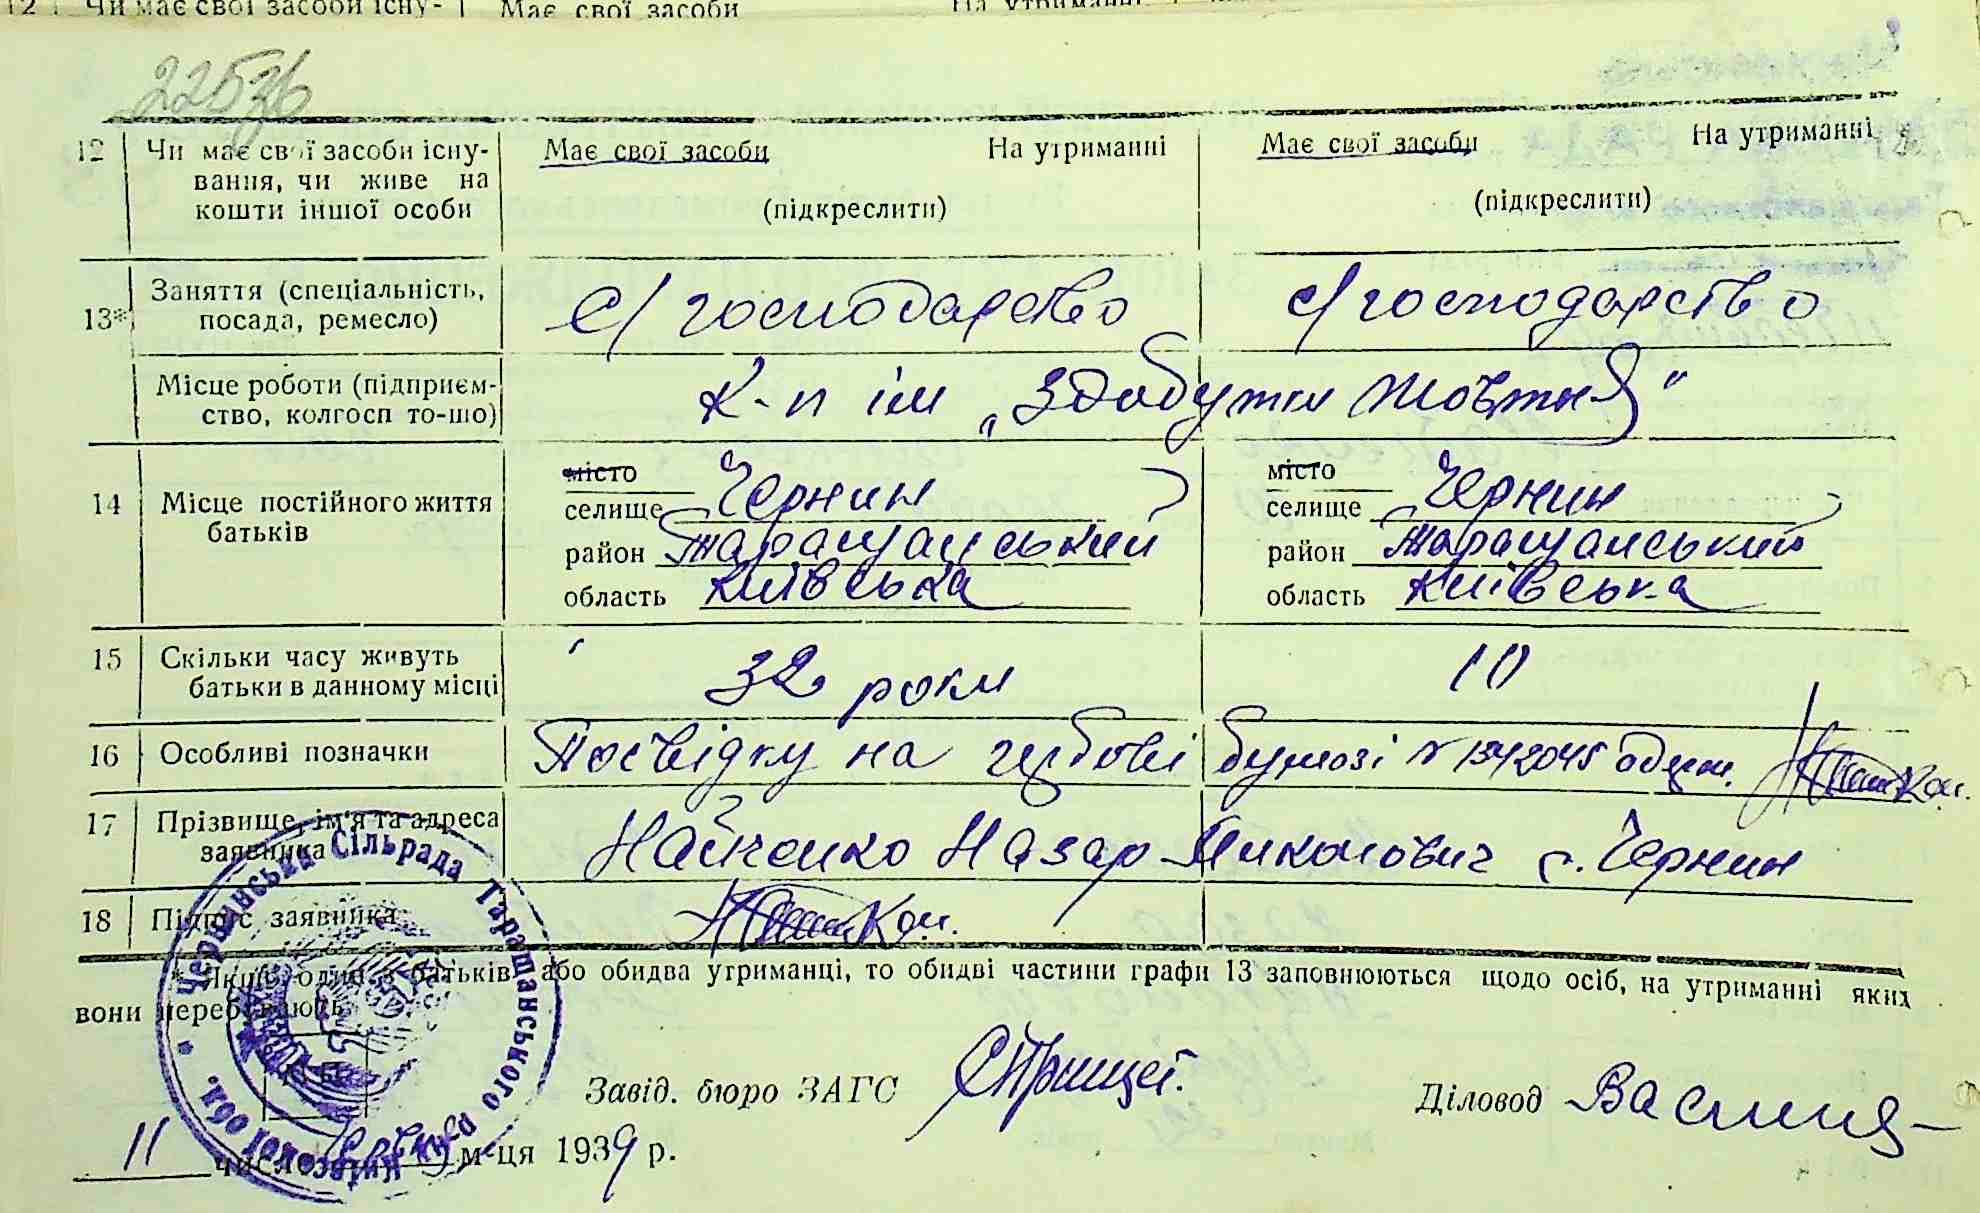 12 Чи має свої засоби існу- Має свої засоби На утриманні
22536
12 Чи має свої засоби існу- Має свої засоби На утриманні Має свої засоби На утриманні
вання, чи живе на
кошти іншої особи (підкреслити) (підкреслити)
13* Заняття (спеціальність, с/господарство с/господарство
посада, ремесло)
Місце роботи (підприєм- К-п ім „Здобутки Жовтня"
ство, колгосп то-що)
14 Місце постійного життя місто місто
батьків селище Чернин селище Чернин
район Таращанський район Таращанський
область Київська область Київська
15 Скільки часу живуть 32 роки 10
батьки в данному місці
16 Особливі позначки Посвідку на гербові бумозі № 1342045 одерж.
17 Прізвище, ім'я та адреса Найченко Назар Миколович с. Чернин
заявника
18 Підпис заявника
* Якщо один з батьків або обидва утриманці, то обидві частини графи 13 заповнюються щодо осіб, на утриманні яких
вони перебувають.
Чернинська Сільрада Таращанського р-ну Київської обл.
Завід. бюро ЗАГС Діловод
11 числа м-ця 1939 р.